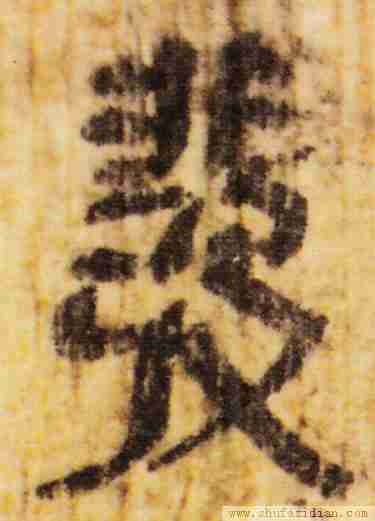 發
www.shufazidian.com